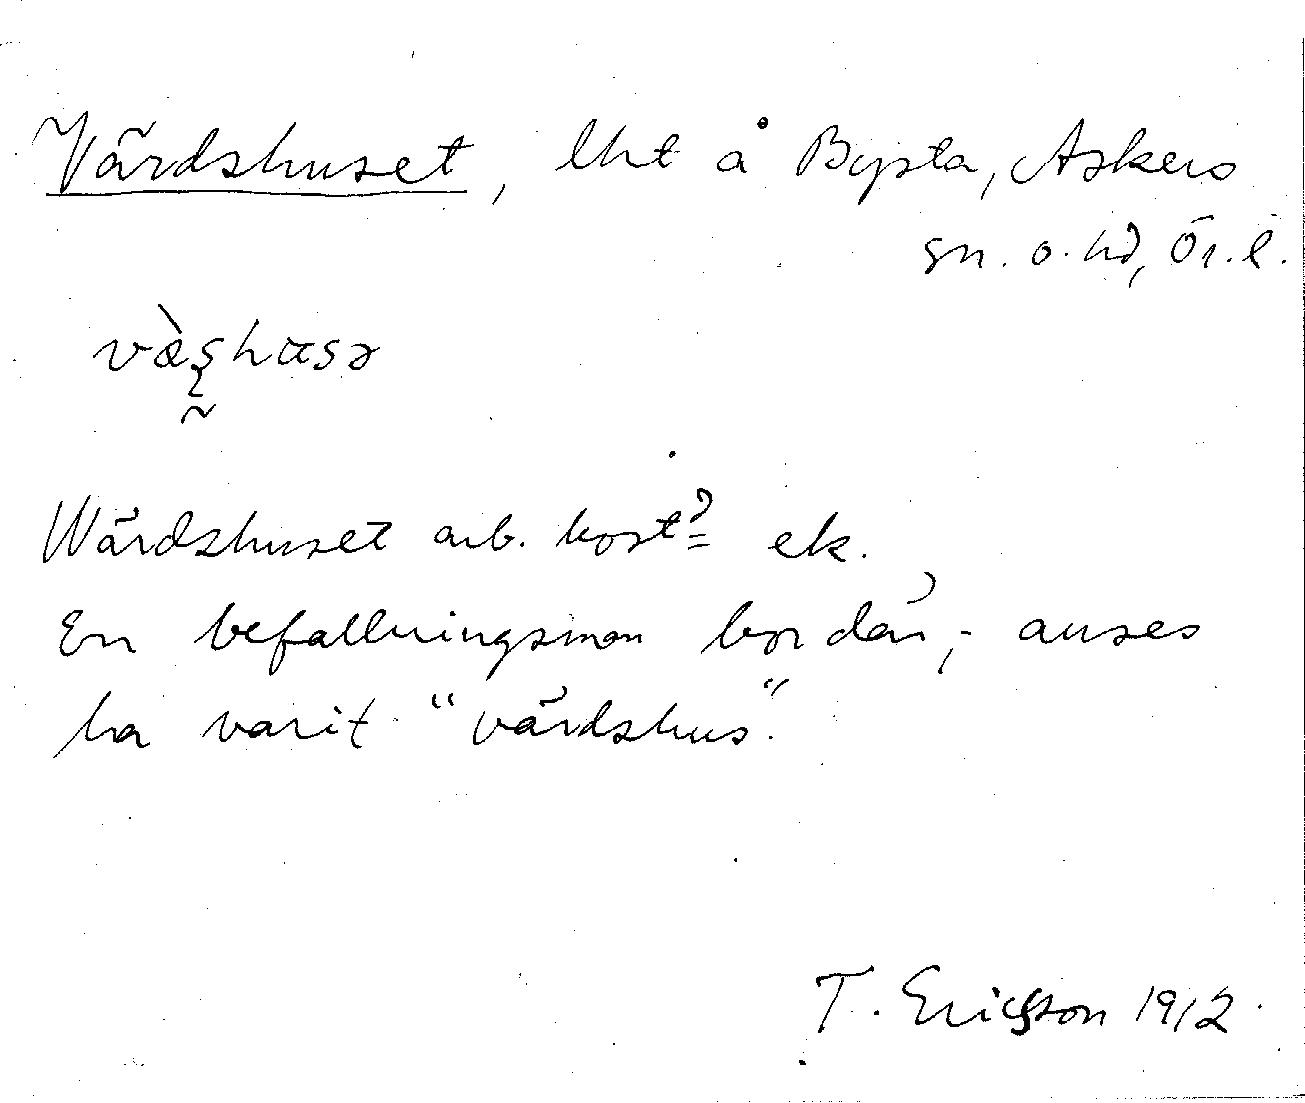 Värdshuset, lht å Bysta, Askers
sn. o. hd, Ör. l.
Wärdshuset arb. bost? ek.
En befallningsman bor där, - anses
ha varit "värdshus".
T. Ericsson 1912